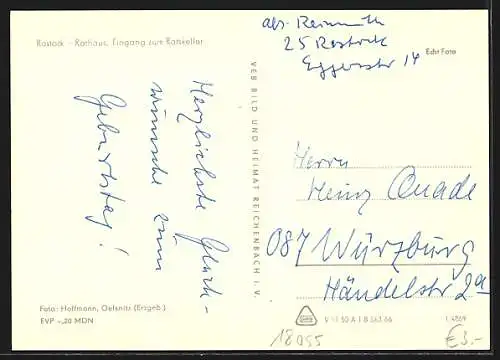 Rostock - Rathaus, Eingang zum Ratskeller
Abs. Reinmuth
25 Rostock
Eggersstr 14
Echt Foto
Herzlichste Glück-
wünsche zum
Geburtstag!
VEB BILD UND HEIMAT REICHENBACH I. V.
Herrn
Heinz Quade
087 Würzburg
Händelstr 2a
Foto: Hoffmann, Oelsnitz (Erzgeb.)
EVP -,20 MDN
V 11 50 A 1 B 363 66
1 4869
18055
€3.-